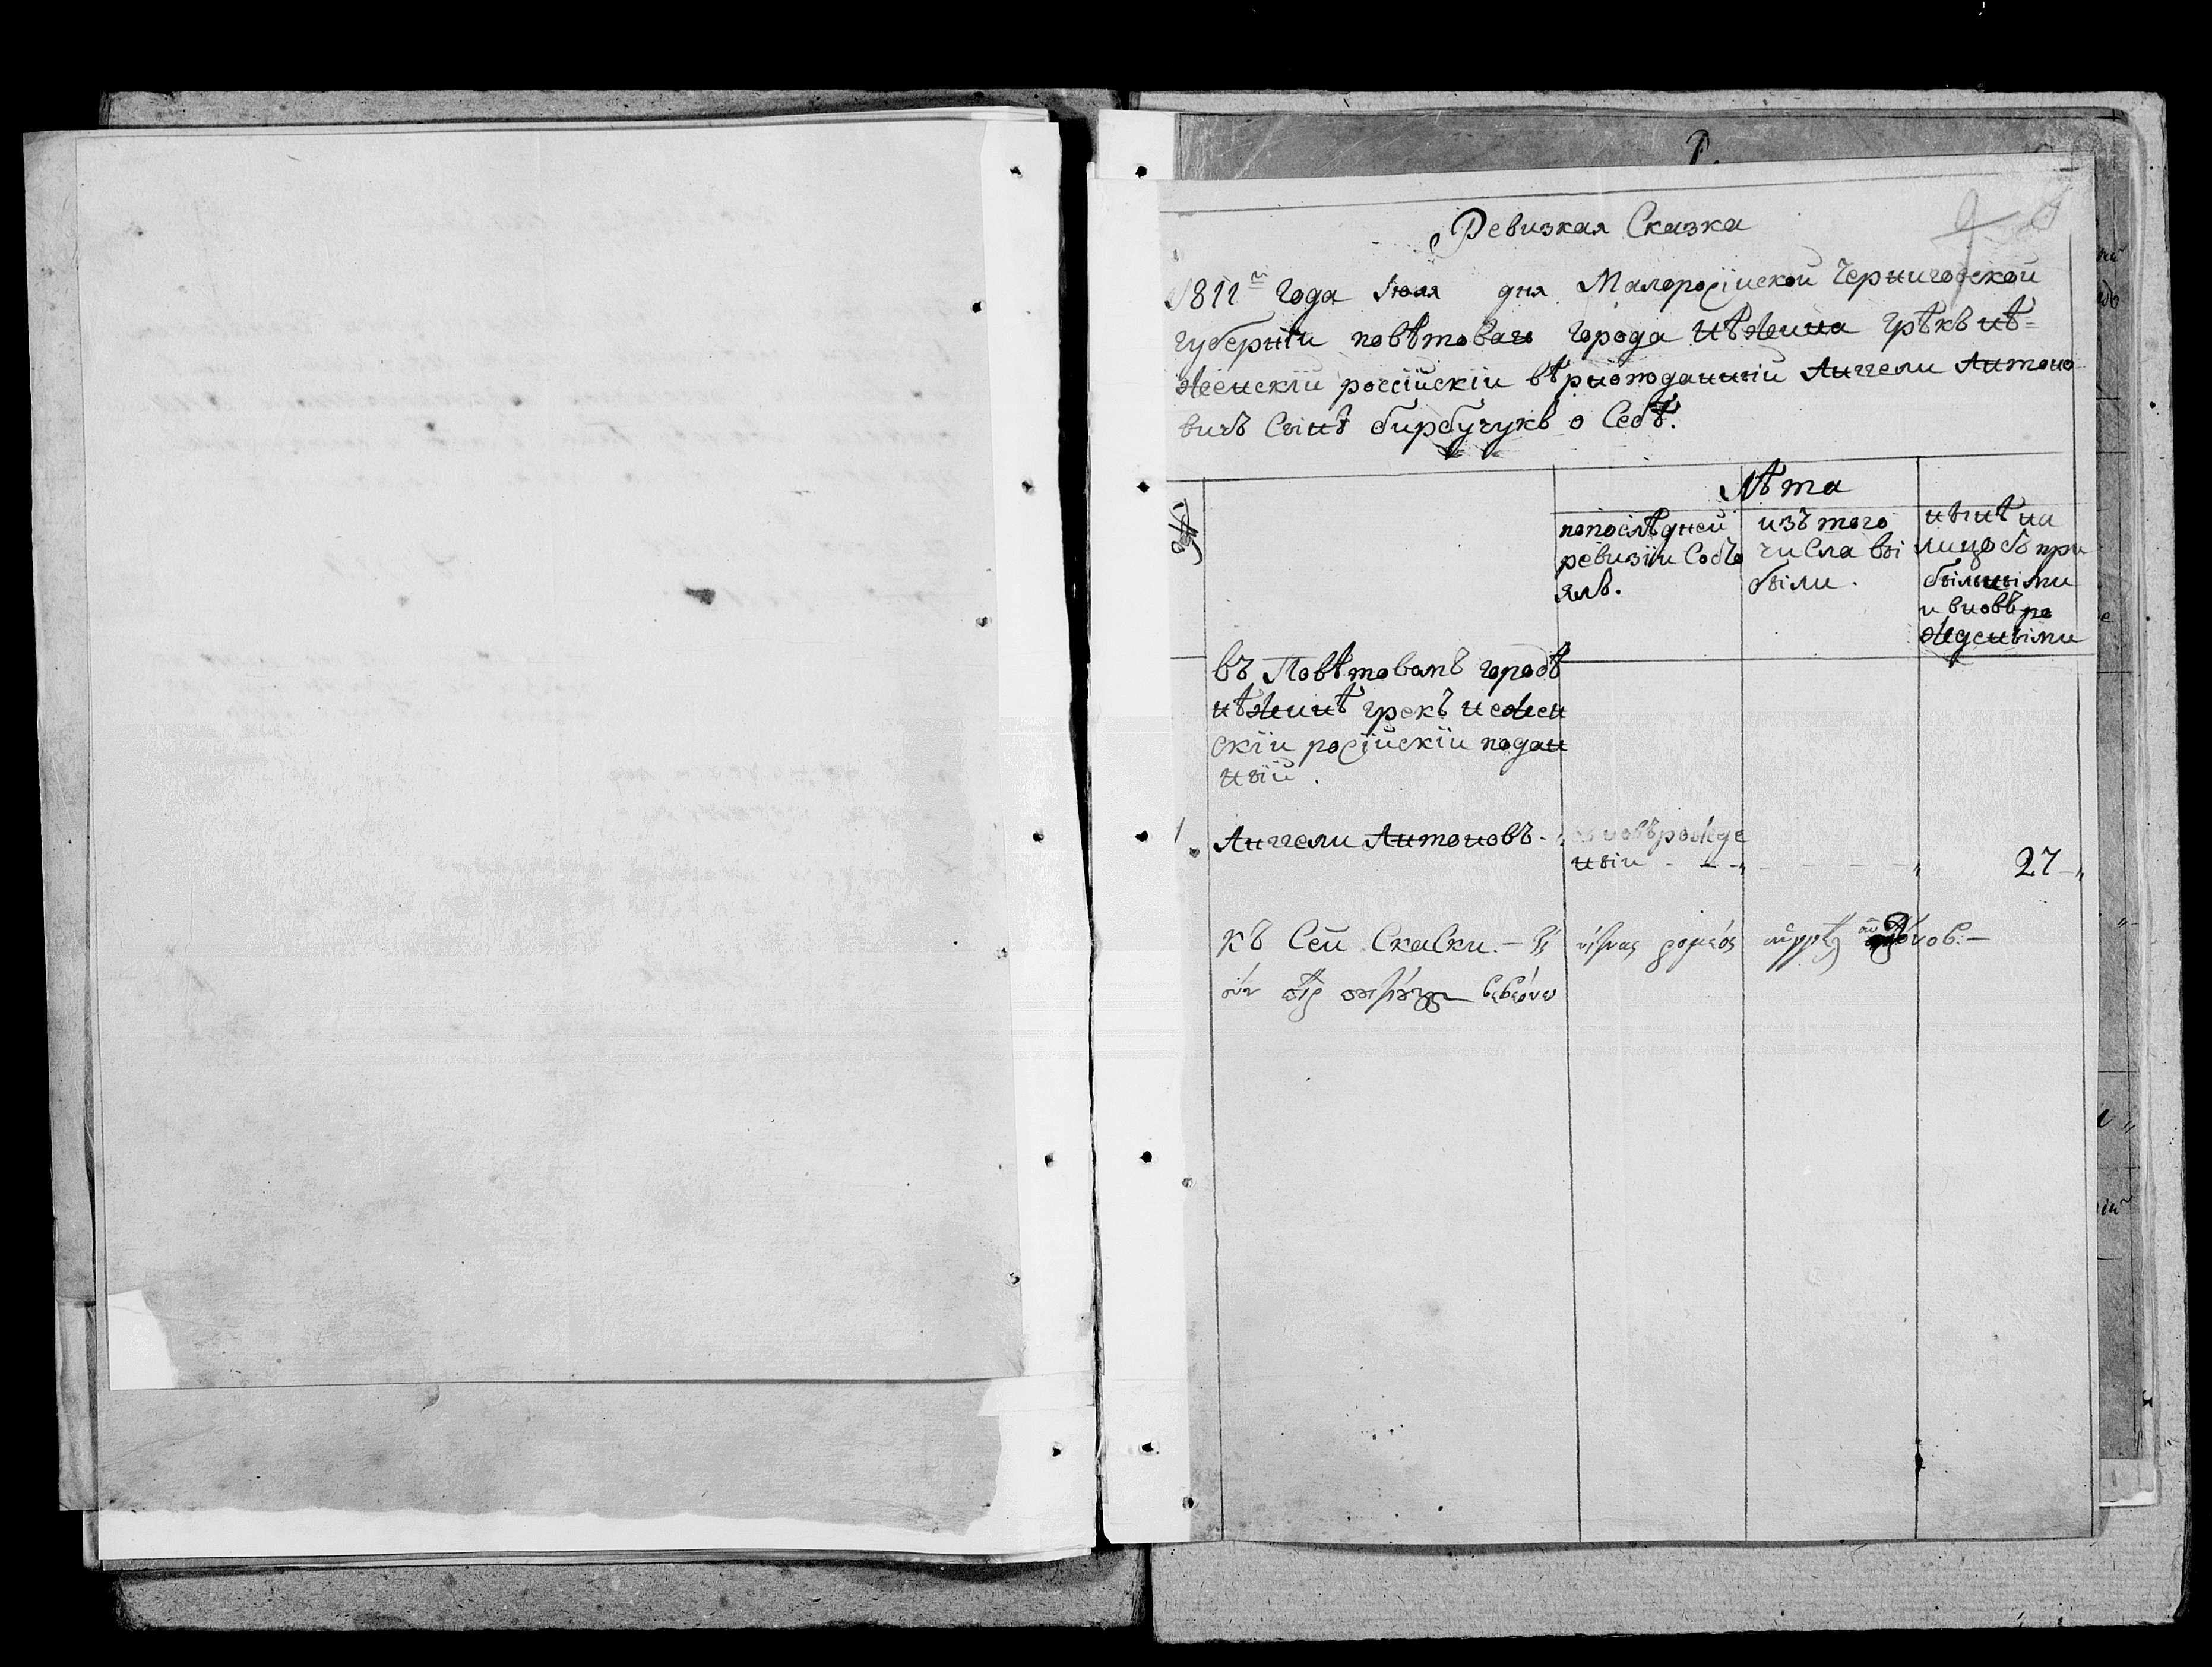 Ревизкая Сказка
1811го Года Іюля дня Малоросїиской Черниговской
губернїи повѣтоваго города Нѣжина грѣкъ нѣ=
женскїй россїйскїи вѣрноподанный Аггели Антоно
вичъ Сынъ бирбучукъ о Себѣ.
Лѣта
попослѣдней ревизїи Состо ялъ.
изъ того числа вы были.
нынѣ на лицо съ при былными и вновъ ро жденными
въ Повѣтовамъ городѣ
нѣжинѣ грекъ нежен
скїи росїйскїи подан
ный.
1 Анггели Антоновъ - вновъ рожде
ный - - - 27
Къ Сей Скаски.